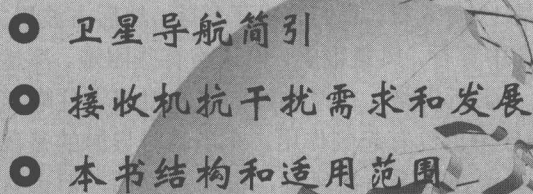 卫星导航简引
接收机抗干扰需求和发展
本书结构和适用范围